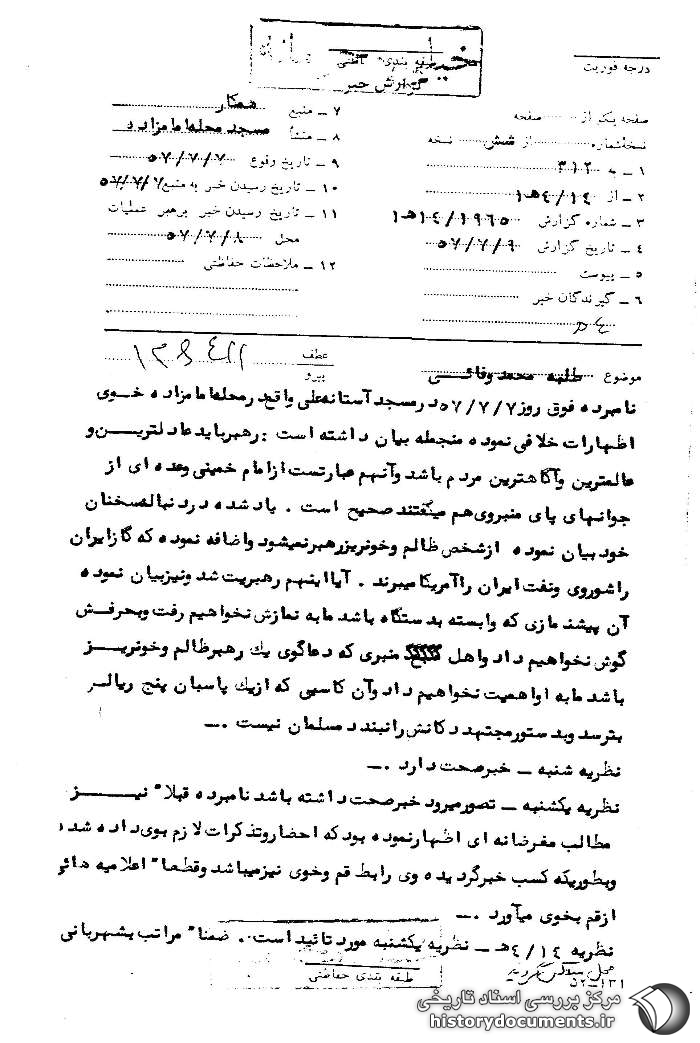 خیلی محرمانه
طبقه بندی حفاظتی
گزارش خبر
درجه فوریت
صفحه یکم از صفحه
نسخه شماره از شش نسخه
۱ ـ به ۳۱۲
۲ ـ از ۴/۱۴هـ۱
۳ ـ شماره گزارش ۱۴/۱۹۶۵هـ۱
۴ ـ تاریخ گزارش ۵۷/۷/۹
۵ ـ پیوست
۶ ـ گیرندگان خبر
۷ ـ منبع همکار
۸ ـ منشأ مسجد محله امامزاده
۹ ـ تاریخ وقوع ۵۷/۷/۷
۱۰ ـ تاریخ رسیدن خبر به منبع ۵۷/۷/۷
۱۱ ـ تاریخ رسیدن خبر برهبر عملیات
محل ۵۷/۷/۸
۱۲ ـ ملاحظات حفاظتی
موضوع طلبه محمد وفائی
عطف
پیرو
نامبرده فوق روز ۵۷/۷/۷ در مسجد آستانه علی واقع در محله امامزاده خوی
اظهارات خلافی نموده منجمله بیان داشته است : رهبر باید عادلترین و
عالمترین وآگاهترین مردم باشد وآنهم عبارتست از امام خمینی وعده ای از
جوانهای پای منبروی هم میگفتند صحیح است . یاد شده در دنباله سخنان
خود بیان نموده از شخص ظالم وخونریز رهبر نمیشود واضافه نموده که گاز ایران
را شوروی ونفت ایران را آمریکا میبرند . آیا اینهم رهبریت شد ونیز بیان نموده
آن پیشنمازی که وابسته بدستگاه باشد ما به نمازش نخواهیم رفت وبحرفش
گوش نخواهیم داد واهل منبری که دعاگوی یك رهبر ظالم وخونریز
باشد ما به او اهمیت نخواهیم داد وآن کاسبی که از یك پاسبان پنج ریالی
بترسد وبدستور مجتهد دکانش را نبندد مسلمان نیست .ـ
نظریه شنبه ـ خبر صحت دارد .ـ
نظریه یکشنبه ـ تصور میرود خبر صحت داشته باشد نامبرده قبلاً نیز
مطالب مغرضانه ای اظهار نموده بود که احضار وتذکرات لازم بوی داده شده
وبطوریکه کسب خبر گردیده وی رابط قم وخوی نیز میباشد وقطعاً اعلامیه هائی
از قم بخوی میآورد .ـ
نظریه ۴/۱۴هـ ـ نظریه یکشنبه مورد تائید است . ضمناً مراتب بشهربانی
طبقه بندی حفاظتی
۵۲-۱۳۱
مرکز بررسی اسناد تاریخی
historydocuments.ir